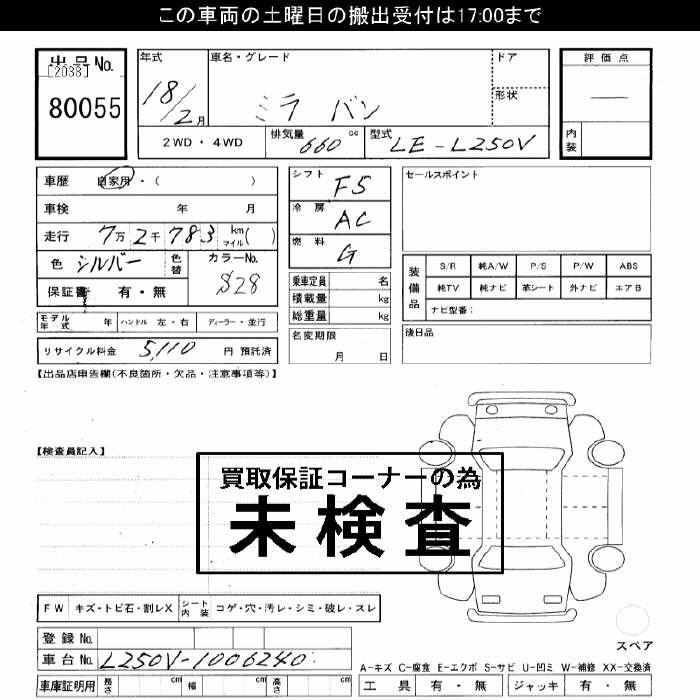 この車両の土曜日の搬出受付は17:00まで
出品No.
[2038]
80055
年式
18/2月
車名・グレード
ミラ バン
ドア
形状
評価点
—
内装
2WD・4WD
排気量 660 cc
型式 LE-L250V
車歴 自家用・( )
車検 年 月
走行 7万2千783 km マイル( )
色 シルバー 色替
カラーNo. S28
保証書 有・無
シフト F5
冷房 AC
燃料 G
乗車定員 名
積載量 kg
総重量 kg
セールスポイント
装備品
S/R 純A/W P/S P/W ABS
純TV 純ナビ 革シート 外ナビ エアB
ナビ型番:
モデル年式 年 ハンドル 左・右 ディーラー・並行
名変期限 月 日
後日品
リサイクル料金 5,110 円 預託済
【出品店申告欄(不良箇所・欠品・注意事項等)】
【検査員記入】
買取保証コーナーの為
未検査
FW キズ・トビ石・割レX シート内装 コゲ・穴・汚レ・シミ・破レ・スレ
登録No.
車台No. L250V-1006240
車庫証明用 長さ cm 幅 cm 高さ cm
スペア
A-キズ C-腐食 E-エクボ S-サビ U-凹ミ W-補修 XX-交換済
工具 有・無 ジャッキ 有・無